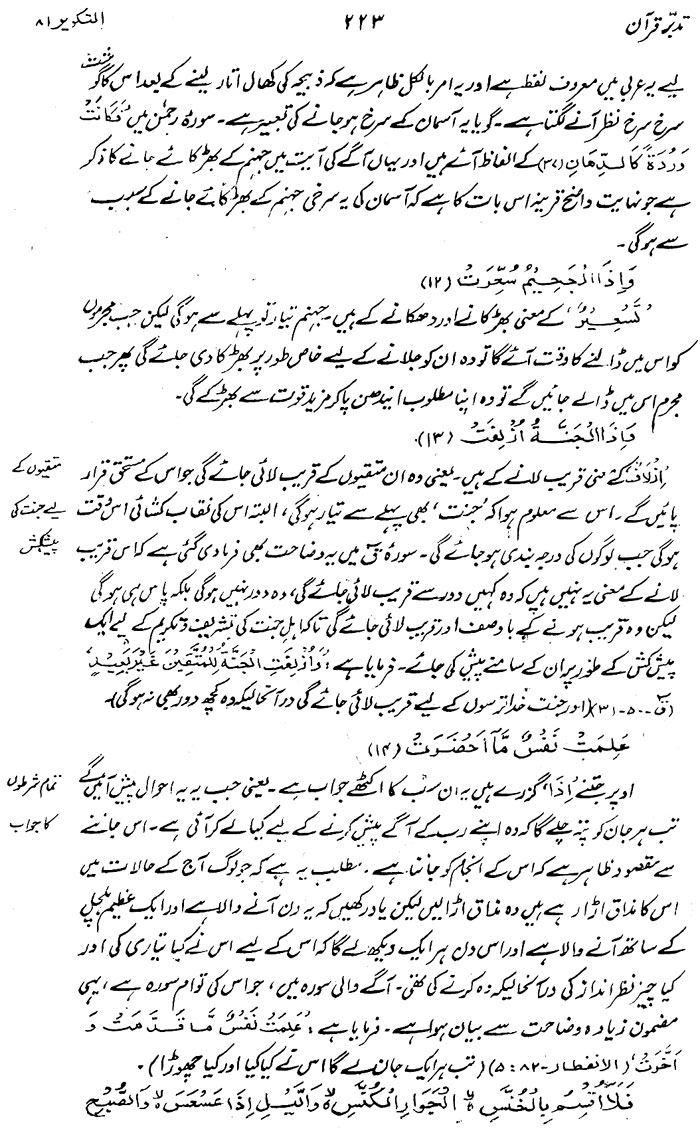 تدبّرِ قرآن ۲۲۳ التکویر ۸۱
لیے یہ عربی میں معروف لفظ ہے اور یہ امر بالکل ظاہر ہے کہ ذبیحہ کی کھال اتار لینے کے بعد اس کا گوشت
سرخ سرخ نظر آنے لگتا ہے۔ گویا یہ آسمان کے سرخ ہو جانے کی تعبیر ہے۔ سورۂ رحمٰن میں ’فَکَانَتْ
وَرْدَۃً کَالدِّھَانِ (۳۷) کے الفاظ آئے ہیں اور یہاں آگے کی آیت میں جہنم کے بھڑکائے جانے کا ذکر
ہے جو نہایت واضح قرینہ اس بات کا ہے کہ آسمان کی یہ سرخی جہنم کے بھڑکائے جانے کے سبب
سے ہو گی۔
وَاِذَا الْجَحِیْمُ سُعِّرَتْ (۱۲)
’تَسْعِیْرٌ‘ کے معنی بھڑکانے اور دھکانے کے ہیں۔ جہنم تیار تو پہلے سے ہو گی لیکن جب مجرموں
کو اس میں ڈالنے کا وقت آئے گا تو وہ ان کو جلانے کے لیے خاص طور پر بھڑکا دی جائے گی پھر جب
مجرم اس میں ڈالے جائیں گے تو وہ اپنا مطلوب ایندھن پا کر مزید قوت سے بھڑکے گی۔
وَاِذَا الْجَنَّۃُ اُزْلِفَتْ (۱۳)
متقیوں کے
لیے جنت کی
پیشکش
’اِزْلَافٌ‘ کے معنی قریب لانے کے ہیں۔ یعنی وہ ان متقیوں کے قریب لائی جائے گی جو اس کے مستحق قرار
پائیں گے۔ اس سے معلوم ہوا کہ ’جنت‘ بھی پہلے سے تیار ہو گی، البتہ اس کی نقاب کشائی اس وقت
ہو گی جب لوگوں کی درجہ بندی ہو جائے گی۔ سورۂ قٓ میں یہ وضاحت بھی فرما دی گئی ہے کہ اس قریب
لانے کے معنی یہ نہیں ہیں کہ وہ کہیں دور سے قریب لائی جائے گی، وہ دور نہیں ہو گی بلکہ پاس ہی ہو گی
لیکن وہ قریب ہونے کے باوصف اور قریب لائی جائے گی تاکہ اہل جنت کی تشریف و تکریم کے لیے ایک
پیش کش کے طور پر ان کے سامنے پیش کی جائے۔ فرمایا ہے: ’وَاُزْلِفَتِ الْجَنَّۃُ لِلْمُتَّقِیْنَ غَیْرَ بَعِیْدٍ‘
(قٓ ۔ ۵۰ : ۳۱) (اور جنت خدا ترسوں کے لیے قریب لائی جائے گی درآنحالیکہ وہ کچھ دور بھی نہ ہو گی)۔
عَلِمَتْ نَفْسٌ مَّآ اَحْضَرَتْ (۱۴)
تمام شرطوں
کا جواب
اوپر جتنے ’اِذَا‘ گزرے ہیں یہ ان سب کا اکٹھے جواب ہے۔ یعنی جب یہ یہ احوال پیش آئیں گے
تب ہر جان کو پتہ چلے گا کہ وہ اپنے رب کے آگے پیش کرنے کے لیے کیا لے کر آئی ہے۔ اس جاننے
سے مقصود ظاہر ہے کہ اس کے انجام کو جاننا ہے۔ مطلب یہ ہے کہ جو لوگ آج کے حالات میں
اس کا مذاق اڑا رہے ہیں وہ مذاق اڑا لیں لیکن یاد رکھیں کہ یہ دن آنے والا ہے اور ایک عظیم ہلچل
کے ساتھ آنے والا ہے اور اس دن ہر ایک دیکھ لے گا کہ اس کے لیے اس نے کیا تیاری کی اور
کیا چیز نظر انداز کی درآنحالیکہ وہ کرنے کی تھی۔ آگے والی سورہ میں، جو اس کی توام سورہ ہے، یہی
مضمون زیادہ وضاحت سے بیان ہوا ہے۔ فرمایا ہے: ’عَلِمَتْ نَفْسٌ مَّا قَدَّمَتْ وَ
اَخَّرَتْ‘ (الانفطار ۔ ۸۲ : ۵) (تب ہر ایک جان لے گا اس نے کیا کیا اور کیا چھوڑا)۔
فَلَآ اُقْسِمُ بِالْخُنَّسِ ۙ الْجَوَارِ الْکُنَّسِ ۙ وَالَّیْلِ اِذَا عَسْعَسَ ۙ وَالصُّبْحِ